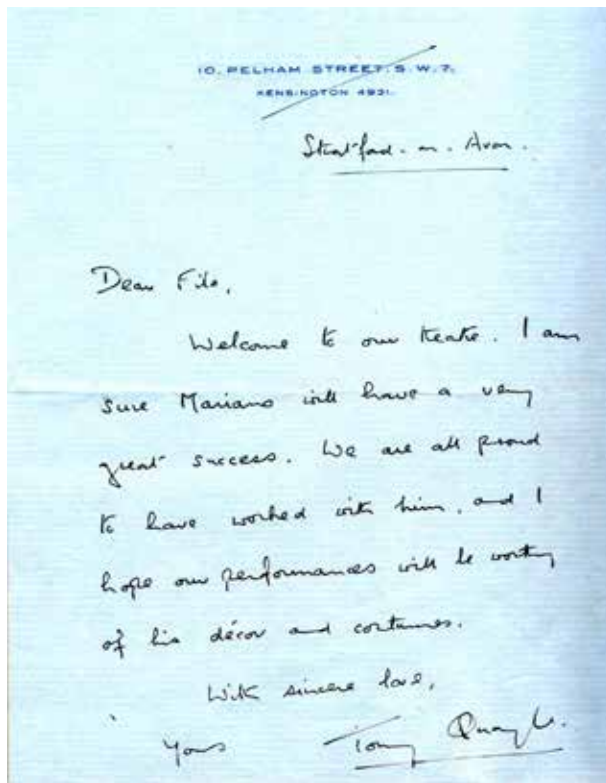 10, PELHAM STREET, S.W.7.
KENSINGTON 4931.
Stratford-on-Avon.
Dear Filo,
Welcome to our theatre. I am
sure Mariano will have a very
great success. We are all proud
to have worked with him, and I
hope our performances will be worthy
of his décor and costumes.
With sincere love,
Yours Tony Quayle.